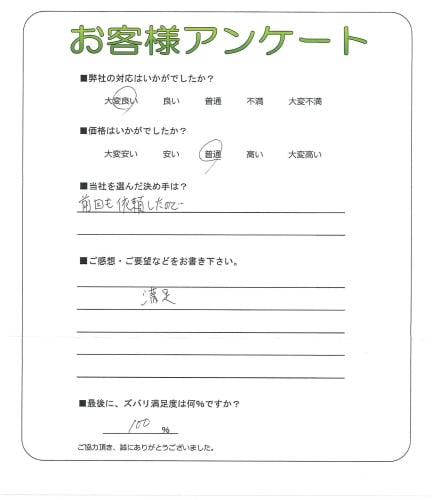 お客様アンケート
■弊社の対応はいかがでしたか？
大変良い 良い 普通 不満 大変不満
■価格はいかがでしたか？
大変安い 安い 普通 高い 大変高い
■当社を選んだ決め手は？
前回も依頼したので
■ご感想・ご要望などをお書き下さい。
満足
■最後に、ズバリ満足度は何％ですか？
100 ％
ご協力頂き、誠にありがとうございました。